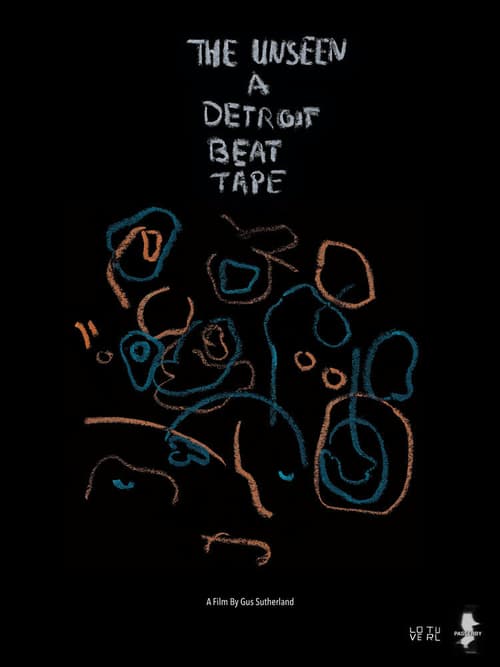 THE UNSEEN
A
DETROIT
BEAT
TAPE
A Film By Gus Sutherland
LO TU
VE RL
PASSERBY